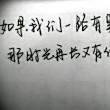 如果我们一路有景
那时光再长又有何